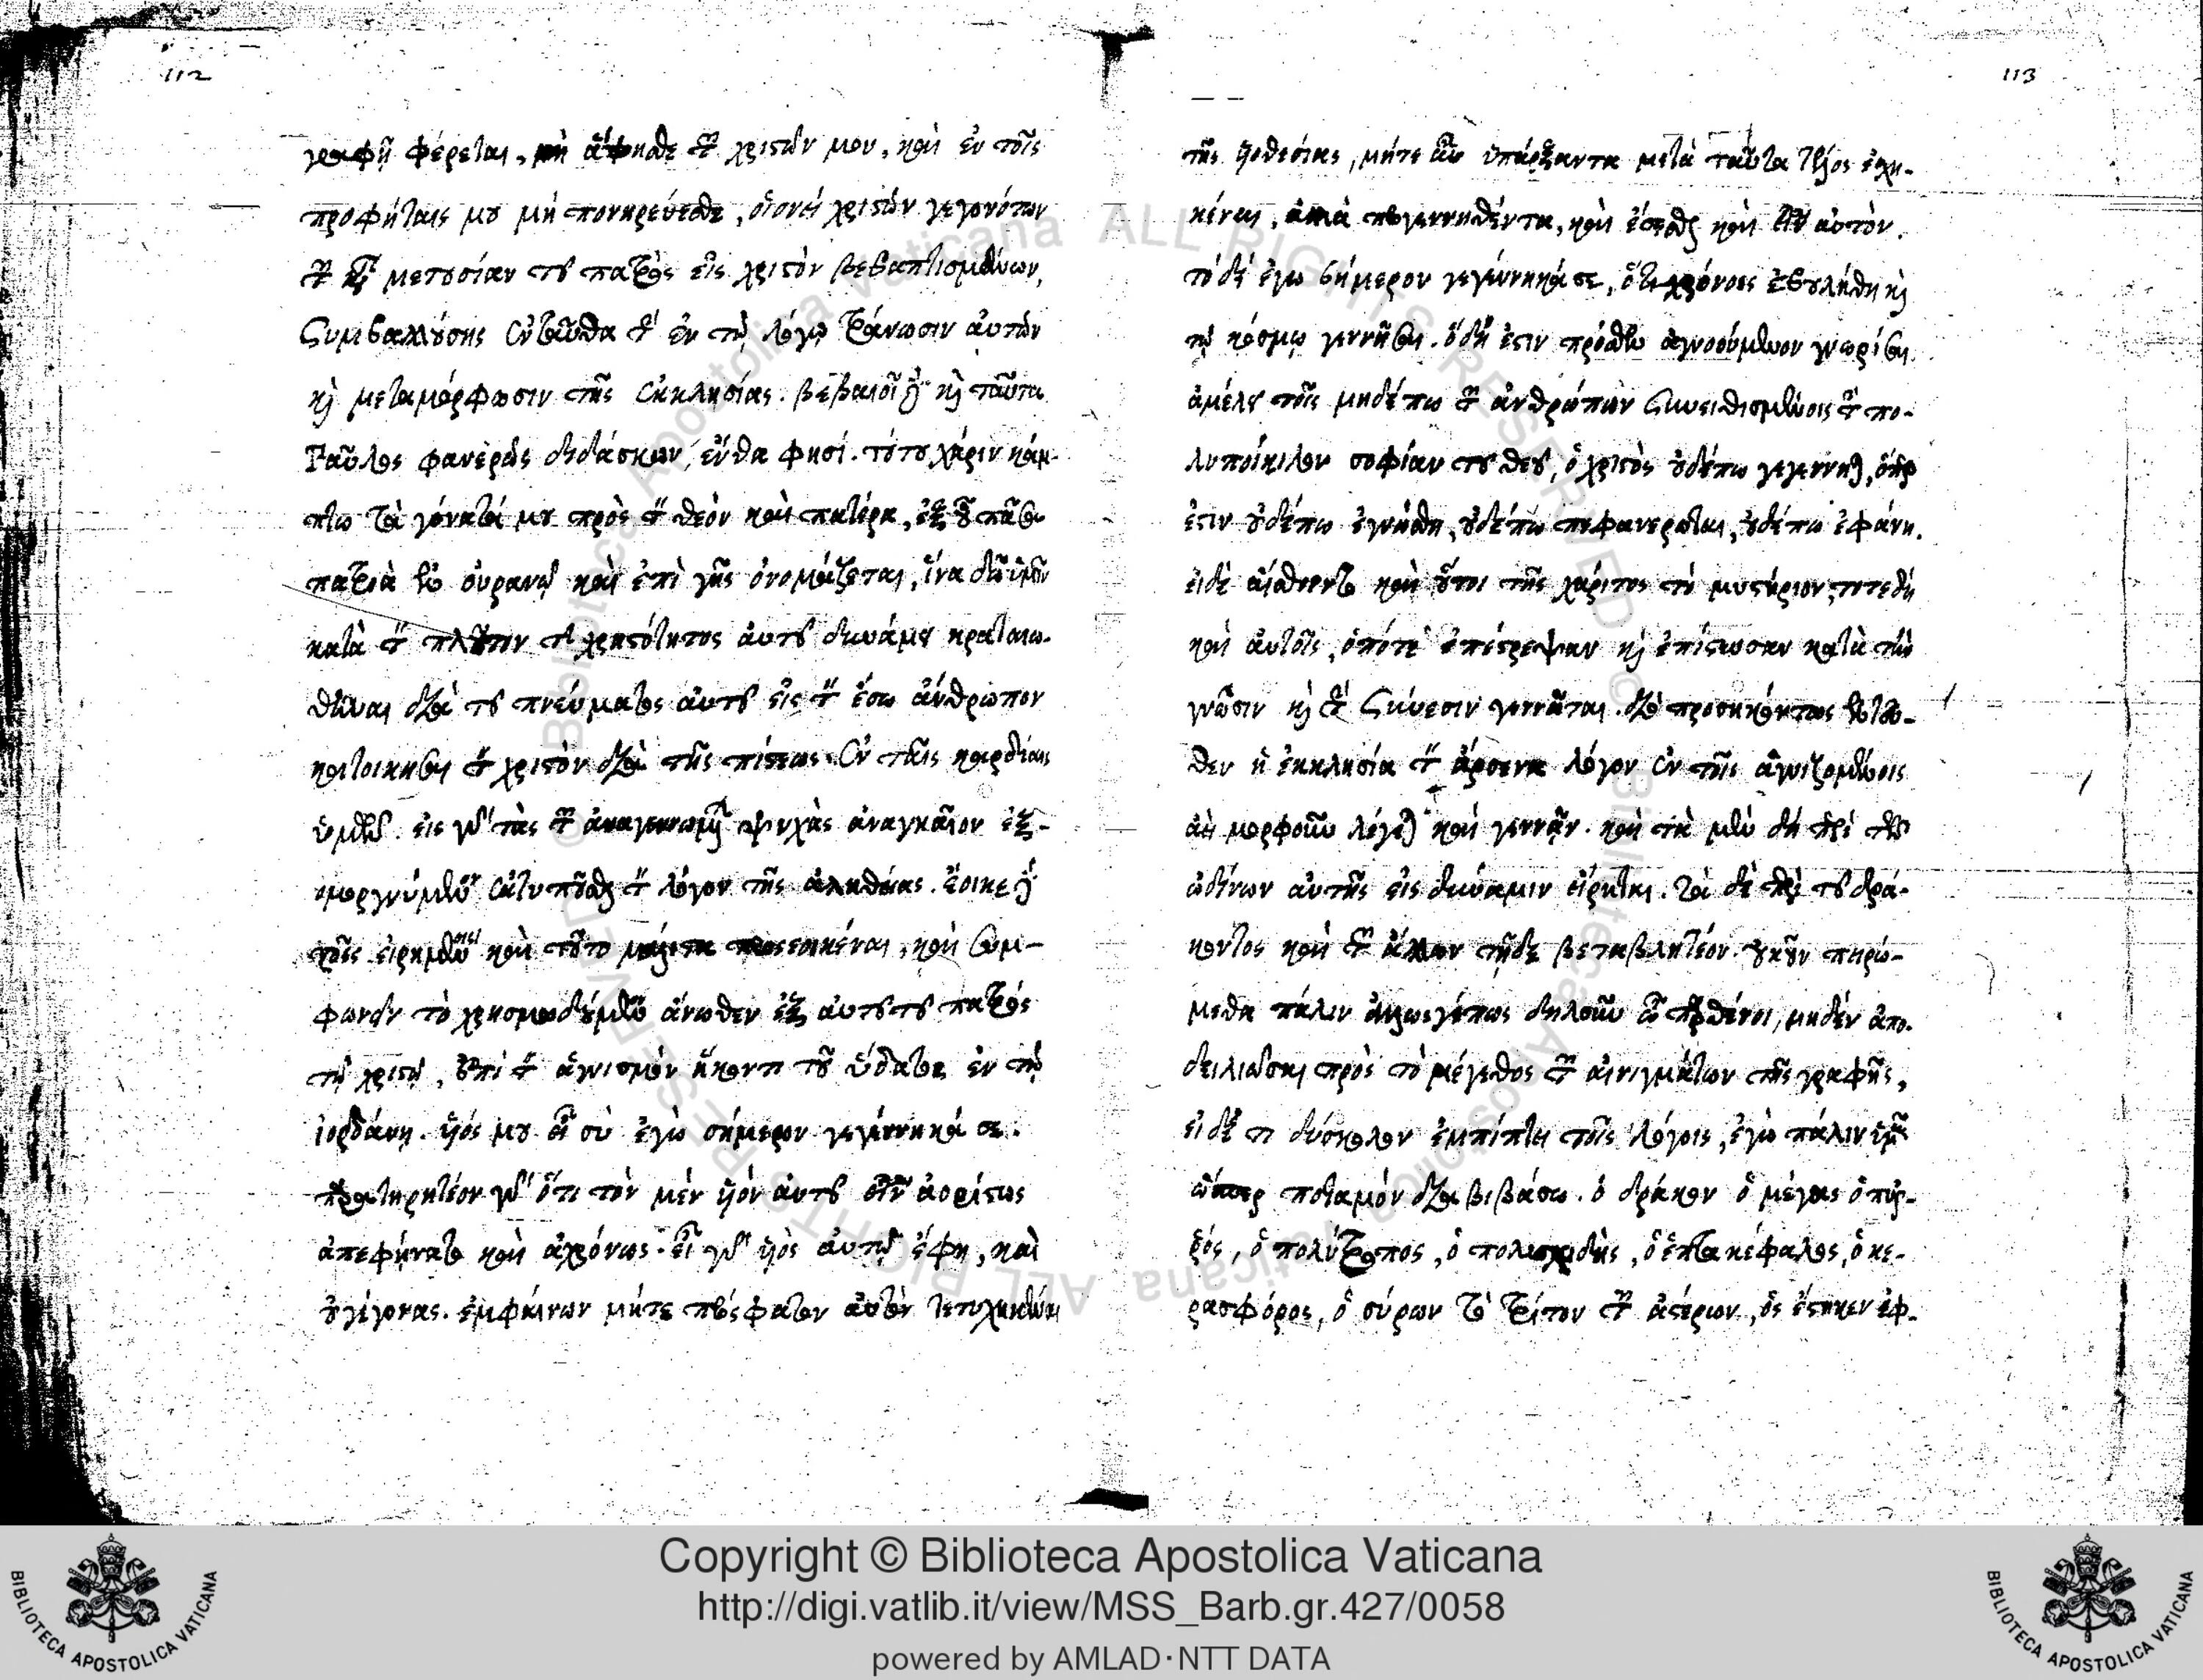 112
γραφῇ φέρεται, μὴ ἅψησθε τῶν χριστῶν μου, καὶ ἐν τοῖς
προφήταις μου μὴ πονηρεύεσθε, οἱονεὶ χριστῶν γεγονότων
τῶν κατὰ μετουσίαν τοῦ πατρὸς εἰς χριστὸν βεβαπτισμένων,
συμβαλλούσης ἐνταῦθα τὴν ἐν τῷ λόγῳ τράνωσιν αὐτῶν
καὶ μεταμόρφωσιν τῆς ἐκκλησίας. βεβαιοῖ δὲ καὶ ταῦτα
Παῦλος φανερῶς διδάσκων, ἔνθα φησί. τούτου χάριν κάμ-
πτω τὰ γόνατά μου πρὸς τὸν θεὸν καὶ πατέρα, ἐξ οὗ πᾶσα
πατριὰ ἐν οὐρανῷ καὶ ἐπὶ γῆς ὀνομάζεται, ἵνα δῴη ὑμῖν
κατὰ τὸν πλοῦτον τῆς χρηστότητος αὐτοῦ δυνάμει κραταιω-
θῆναι διὰ τοῦ πνεύματος αὐτοῦ εἰς τὸν ἔσω ἄνθρωπον
κατοικῆσαι τὸν χριστὸν διὰ τῆς πίστεως ἐν ταῖς καρδίαις
ὑμῶν. εἰς γὰρ τὰς τῶν ἀναγεννωμένων ψυχὰς ἀναγκαῖον ἐξ-
ομοργνύμενον ἐκτυποῦσθαι τὸν λόγον τῆς ἀληθείας. ἔοικε δὲ
τοῖς εἰρημένοις καὶ τοῦτο μάλιστα προσεοικέναι, καὶ συμ-
φωνεῖν τὸ χρησμῳδούμενον ἄνωθεν ἐξ αὐτοῦ τοῦ πατρός
τῷ χριστῷ, ἐπὶ τὸν ἁγνισμὸν ἥκοντι τοῦ ὕδατος ἐν τῷ
ἰορδάνῃ. υἱός μου εἶ σὺ ἐγὼ σήμερον γεγέννηκά σε.
παρατηρητέον γὰρ ὅτι τὸν μὲν υἱὸν αὐτοῦ εἶναι ἀορίστως
ἀπεφήνατο καὶ ἀχρόνως. εἶ γὰρ υἱὸς αὐτῷ ἔφη, καὶ
οὐ γέγονας. ἐμφαίνων μήτε πρόσφατον αὐτὸν τετυχηκέναι
113
τῆς υἱοθεσίας, μήτε αὖ ὑπάρξαντα μετὰ ταῦτα τέλος ἐσχη-
κέναι, ἀλλὰ προγεννηθέντα, καὶ ἔσεσθαι καὶ εἶναι αὐτὸν.
τὸ δὲ ἐγὼ σήμερον γεγέννηκά σε, ὅτι χρόνοις ἐβουλήθη καὶ
τῷ κόσμῳ γεννῆσαι. ὃ δή ἐστιν πρόσθεν ἀγνοούμενον γνωρίσαι.
ἀμέλει τοῖς μηδέπω τῶν ἀνθρώπων συνειθισμένοις τὴν πο-
λυποίκιλον σοφίαν τοῦ θεοῦ, ὁ χριστὸς οὐδέπω γεγέννηται, ὅπερ
ἐστιν οὐδέπω ἐγνώσθη, οὐδέπω πεφανερωται, οὐδέπω ἐφάνη.
εἰ δὲ αἴσθοιντο καὶ οὗτοι τῆς χάριτος τὸ μυστήριον, τότε δὴ
καὶ αὐτοῖς, ὁπότε ἐπέστρεψαν καὶ ἐπίστευσαν κατὰ τὴν
γνῶσιν καὶ τὴν σύνεσιν γεννᾶται. διὸ προσηκόντως ἐντεῦ-
θεν ἡ ἐκκλησία τὸν ἄρσενα λόγον ἐν τοῖς ἁγνιζομένοις
ἀεὶ μορφοῦν λέγεται καὶ γεννᾷν. καὶ τὰ μὲν δὴ περὶ τῶν
ὠδίνων αὐτῆς εἰς δύναμιν εἴρηται. τὰ δὲ περὶ τοῦ δρά-
κοντος καὶ τῶν ἄλλων τῇδε μεταβλητέον. οὐκοῦν πειρώ-
μεθα πάλιν ἁμωσγέπως δηλοῦν ὦ παρθένοι, μηδὲν ἀπο-
δειλιάσαι πρὸς τὸ μέγεθος τῶν αἰνιγμάτων τῆς γραφῆς,
εἰ δέ τι δύσκολον ἐμπίπτει τοῖς λόγοις, ἐγὼ πάλιν ὑμᾶς
ὥσπερ ποταμόν διαβιβάσω. ὁ δράκων ὁ μέγας ὁ πυρ-
ρός, ὁ πολύτροπος, ὁ πολυσχιδής, ὁ ἑπτακέφαλος, ὁ κε-
ρασφόρος, ὁ σύρων τὸ τρίτον τῶν ἀστέρων, ὃς ἕστηκεν ἐφ-
Copyright © Biblioteca Apostolica Vaticana
http://digi.vatlib.it/view/MSS_Barb.gr.427/0058
powered by AMLAD·NTT DATA
BIBLIOTECA APOSTOLICA VATICANA
BIBLIOTECA APOSTOLICA VATICANA